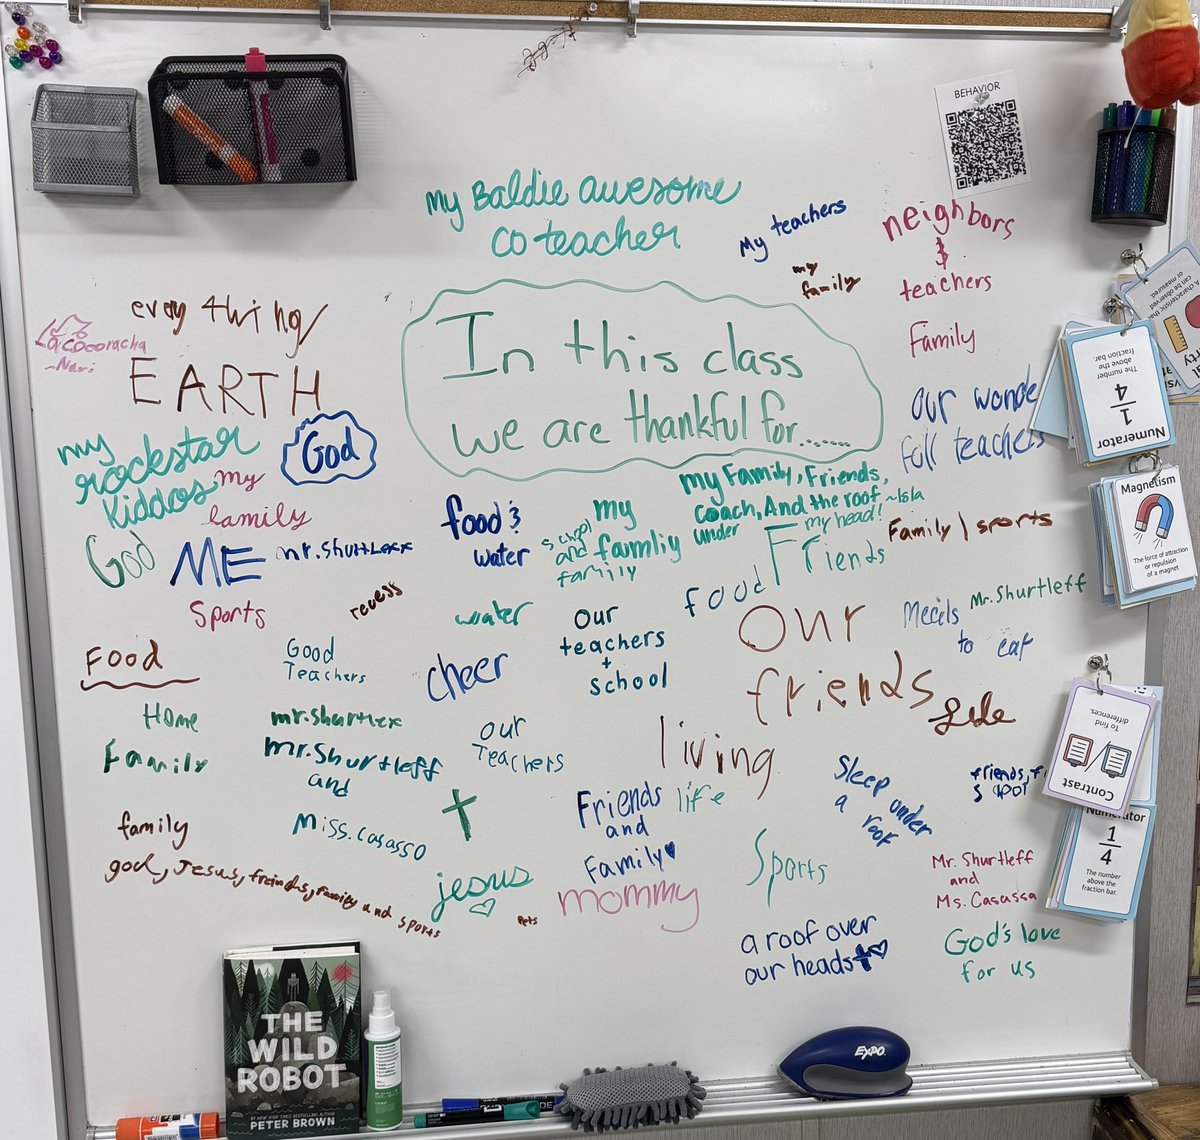 BEHAVIOR
my Baldie awesome
co teacher
My teachers
my
family
neighbors
&
teachers
Family
every thing/
EARTH
La cocoracha
In this class
we are thankful for.......
our wonde
full teachers
my
rockstar
kiddos
God
My
family
God
ME
mr.Shurtlexx
food &
water
my
famliy
school
and
family
my Family, Friends,
Coach, And the roof ~Isla
under
my head!
Friends
Family | sports
Sports
recess
water
Our
teachers
+
school
food
our
friends
Mecils
to eat
Mr. Shurtleff
Food
Good
Teachers
Cheer
Home
Family
mr.shurtlexx
mr.Shurtleff
and
Miss.Casasso
our
Teachers
living
life
Sleep under
a roof
family
god, Jesus, freinds, family and sports
jesus
Pets
Friends
and
Family
mommy
Sports
Mr. Shurtleff
and
Ms. Casassa
a roof over
our heads
God's love
for us
Numerator
1
4
The number
above the
fraction bar.
Magnetism
The force of attraction
or repulsion
of a magnet
Contrast
To find
differences.
1
4
The number
above the
fraction bar.
THE
WILD
ROBOT
PETER BROWN
EXPO